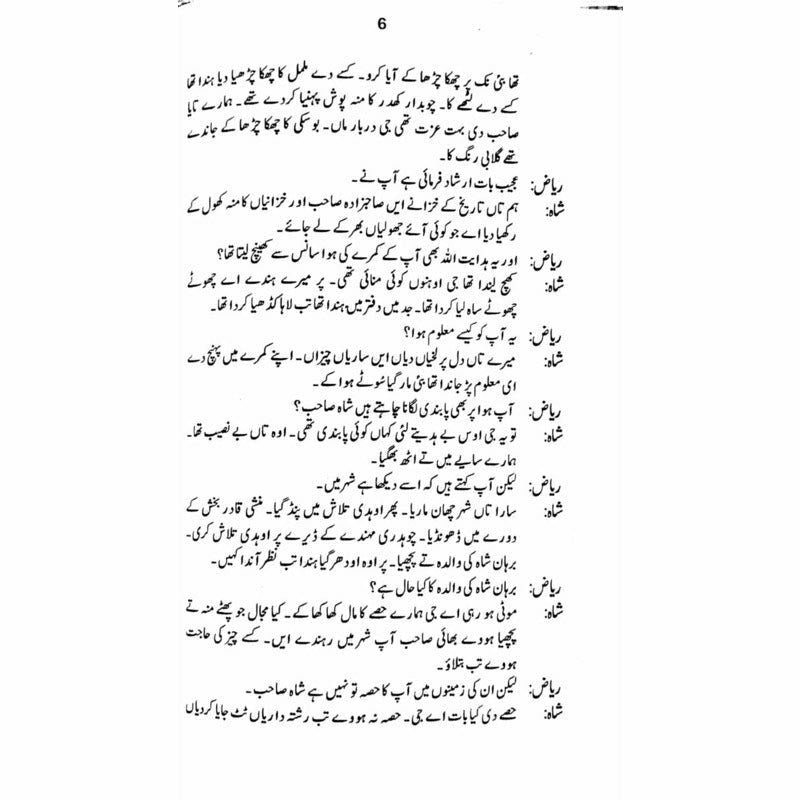 6
تھا بئی نک پر چھکا چڑھا کے آیا کرو۔ کسے دے ململ کا چھکا چڑھیا دیا ہندا تھا
کسے دے لٹھے کا۔ چوبدار کھدر کا منہ پوش پہنیا کردے تھے۔ ہمارے تایا
صاحب دی بہت عزت تھی جی دربار ماں۔ بوسکی کا چھکا چڑھا کے جاندے
تھے گلابی رنگ کا۔
ریاض: عجیب بات ارشاد فرمائی ہے آپ نے۔
شاہ: ہم تاں تاریخ کے خزانے ایں صاحبزادہ صاحب اور خزانیاں کا منہ کھول کے
رکھیا دیا اے جو کوئی آئے جھولیاں بھر کے لے جائے۔
ریاض: اور یہ ہدایت اللہ بھی آپ کے کمرے کی ہوا سانس سے کھینچ لیتا تھا؟
شاہ: کھچ لیندا تھا جی اوہنوں کوئی منائی تھی۔ پر میرے ہندے اے چھوٹے
چھوٹے ساہ لیا کردا تھا۔ جد میں دفتر میں ہندا تھا تب لاہا کڈھیا کردا تھا۔
ریاض: یہ آپ کو کیسے معلوم ہوا؟
شاہ: میرے تاں دل پر لخیاں دیاں ایں ساریاں چیزاں۔ اپنے کمرے میں پہنچ دے
ای معلوم پڑ جاندا تھا بئی مار گیا سُوٹے ہوا کے۔
ریاض: آپ ہوا پر بھی پابندی لگانا چاہتے ہیں شاہ صاحب؟
شاہ: توبہ جی اوس بے ہدیتے لئی کہاں کوئی پابندی تھی۔ اوہ تاں بے نصیب تھا۔
ہمارے سایے میں تے اٹھ بھگیا۔
ریاض: لیکن آپ کہتے ہیں کہ اسے دیکھا ہے شہر میں۔
شاہ: سارا تاں شہر چھان ماریا۔ پھر اوہدی تلاش میں پنڈ گیا۔ منشی قادر بخش کے
دورے میں ڈھونڈیا۔ چوہدری مہندے کے ڈیرے پر اوہدی تلاش کری۔
برہان شاہ کی والدہ تے پچھیا۔ پر اوہ اودھر گیا ہندا تب نظر آندا کہیں۔
ریاض: برہان شاہ کی والدہ کا کیا حال ہے؟
شاہ: موٹی ہو رہی اے جی ہمارے حصے کا مال کھا کھا کے۔ کیا مجال جو پھٹے منہ تے
پچھیا ہووے بھائی صاحب آپ شہر میں رہندے ایں۔ کسے چیز کی حاجت
ہووے تب بتلاؤ۔
ریاض: لیکن ان کی زمینوں میں آپ کا حصہ تو نہیں ہے شاہ صاحب۔
شاہ: حصے دی کیا بات اے جی۔ حصہ نہ ہووے تب رشتہ داریاں ٹٹ جایا کردیاں